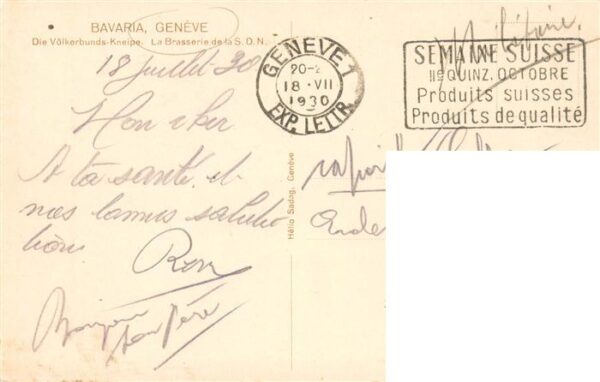 BAVARIA, GENÈVE
Die Völkerbunds-Kneipe. La Brasserie de la S. D. N.
18 Juillet 30
Mon cher
A ta santé et
nos salutations
Ron
Bonjour
ton Père
GENÈVE 1
20-
18·VII
1930
EXP. LETTR.
Militaire.
SEMAINE SUISSE
IIe QUINZ. OCTOBRE
Produits suisses
Produits de qualité
Hélio Sadag, Genève